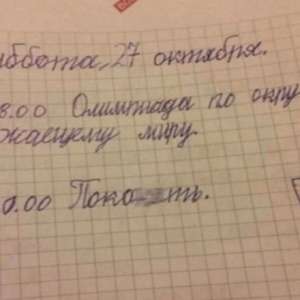 уббота, 27 октября.
8.00 Олимпиада по окру
жающему миру.
0.00